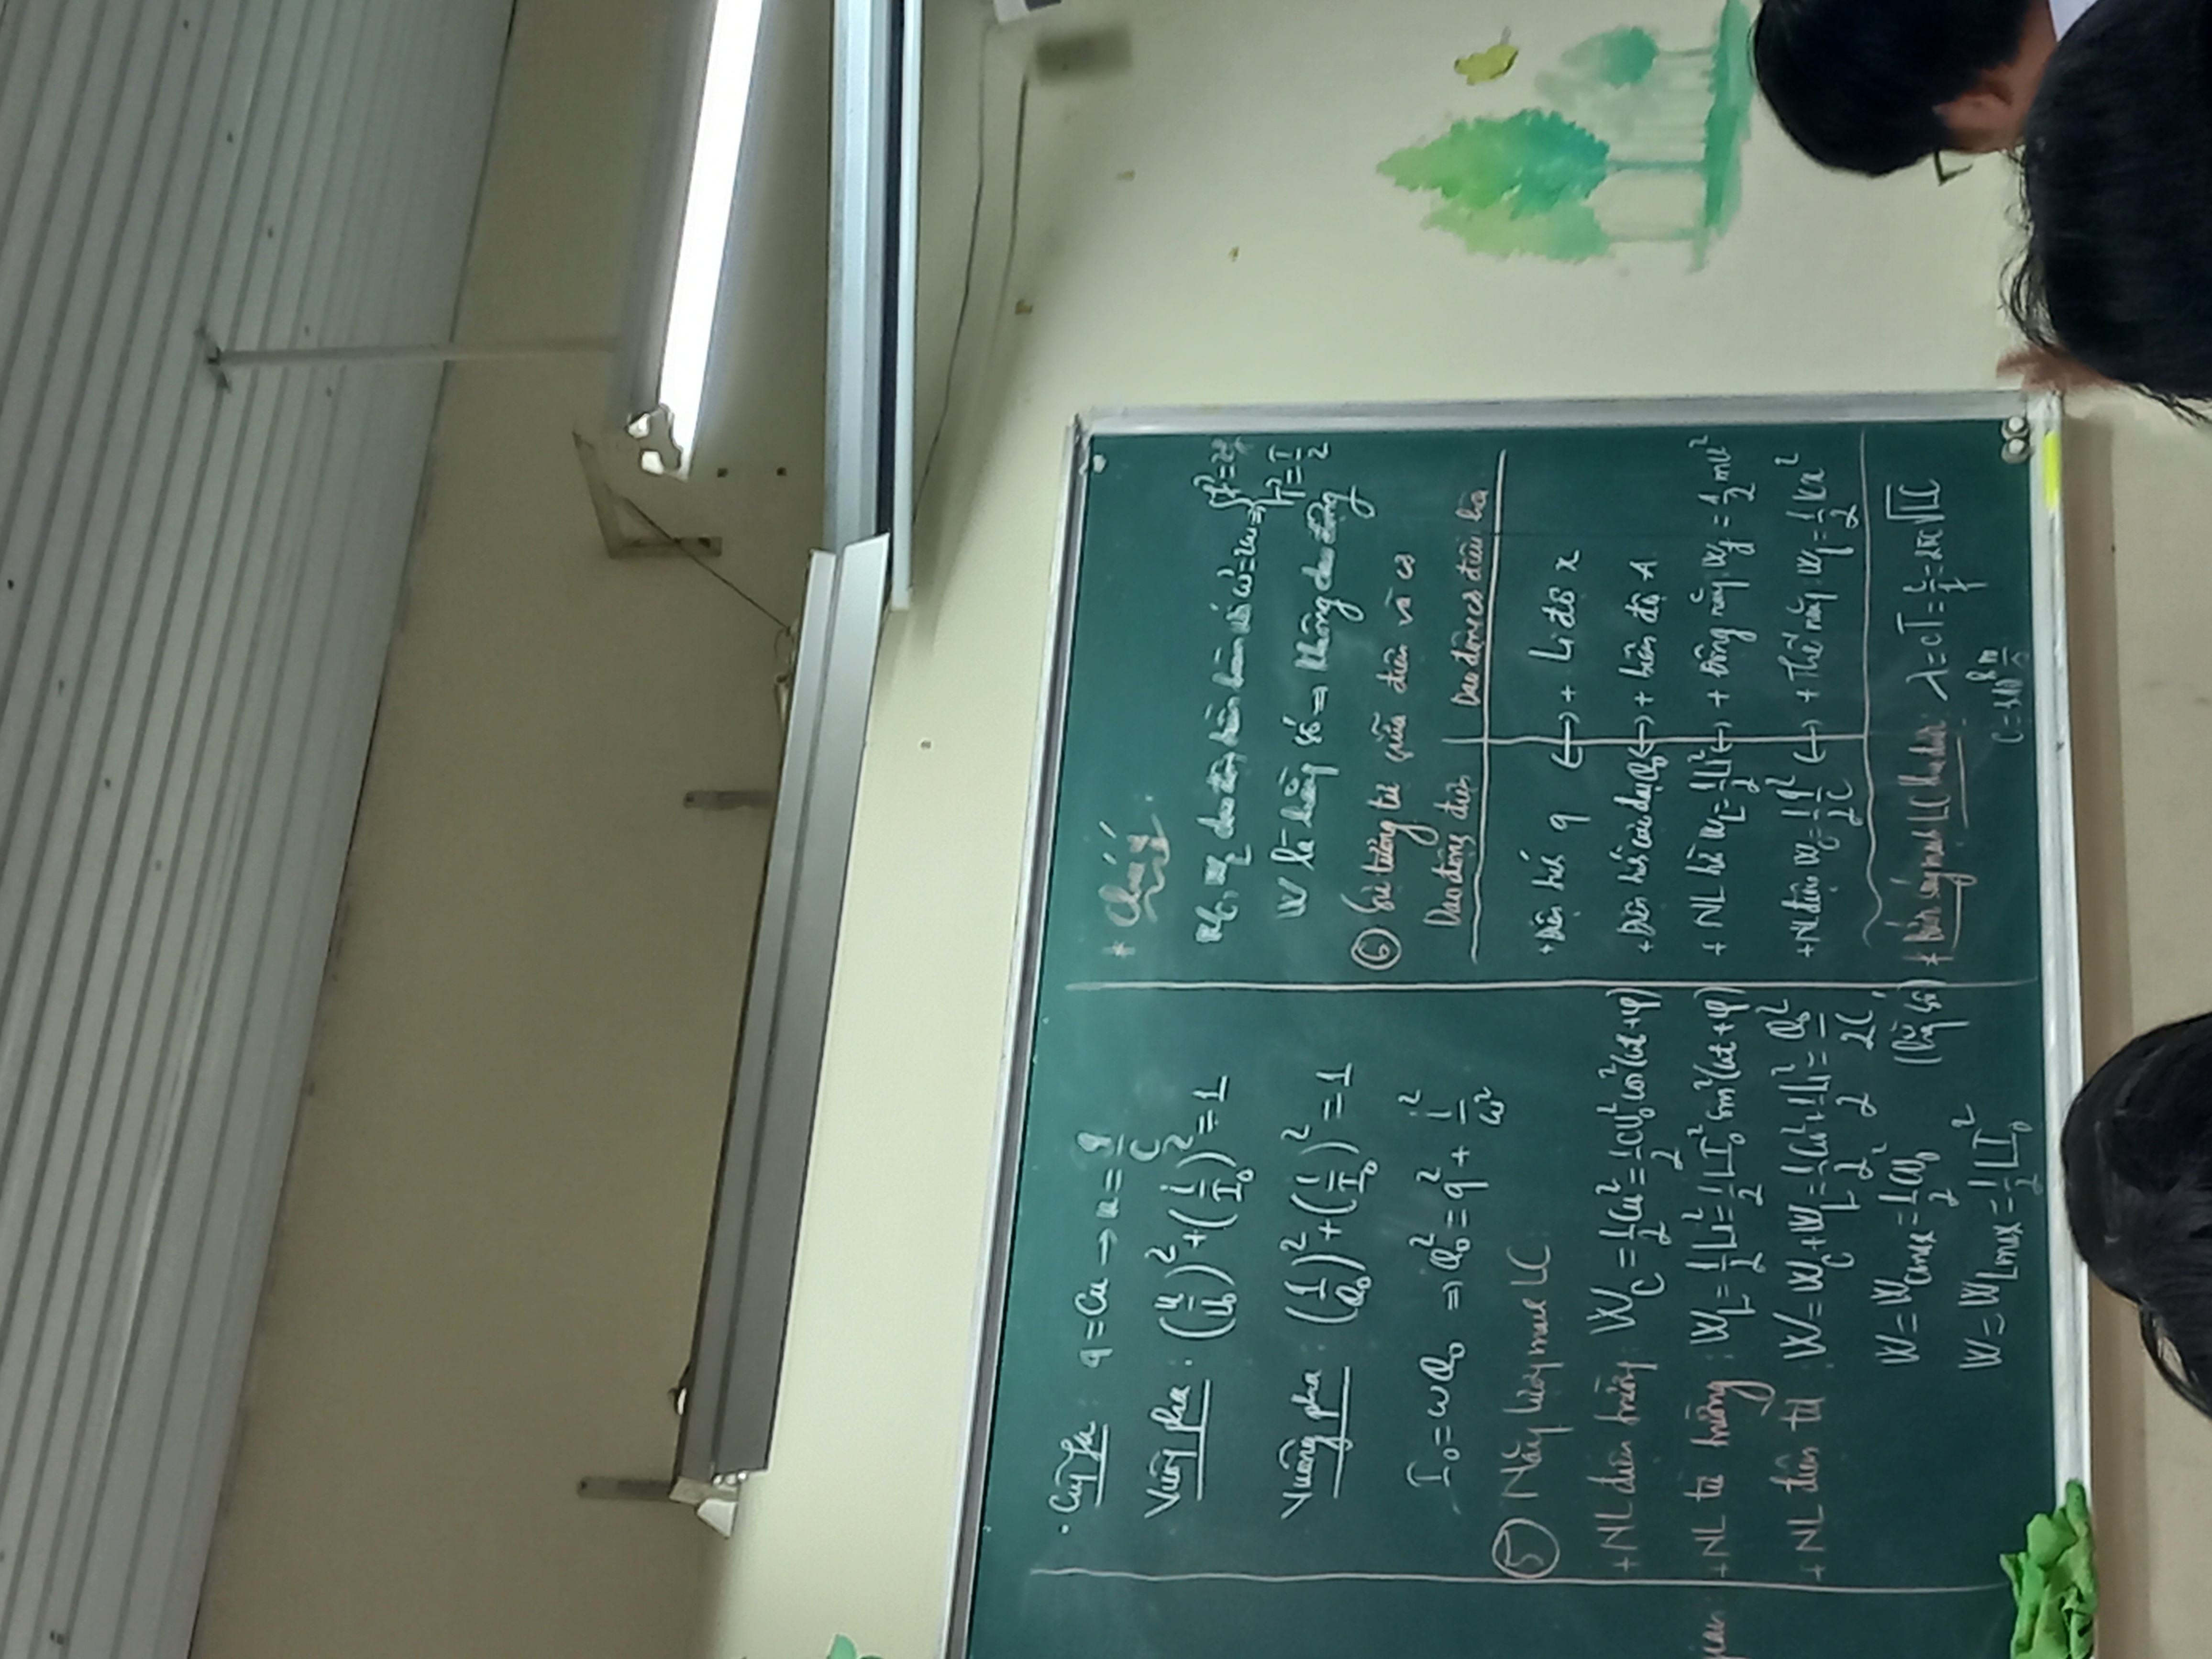 . Cùng fa q = Cu → u = q/C
Vuông pha : (u/U₀)² + (i/I₀)² = 1
Vuông pha : (q/Q₀)² + (i/I₀)² = 1
I₀ = ωQ₀ ⇒ Q₀² = q² + i²/ω²
⑤ Năng lượng mạch LC
+ NL điện trường: W_C = 1/2 Cu² = 1/2 CU₀² cos²(ωt + φ)
+ NL từ trường : W_L = 1/2 Li² = 1/2 LI₀² sin²(ωt + φ)
+ NL điện từ : W = W_C + W_L = 1/2 Cu² + 1/2 Li² = Q₀²/2C
W = W_Cmax = 1/2 CU₀² (hằng số)
W = W_Lmax = 1/2 LI₀²
* Chú ý
W_C, W_L dao động tuần hoàn với ω' = 2ω ⇒ { f' = 2f
T' = T/2
W là hằng số ⇒ không dao động
⑥ Sự tương tự giữa điện và cơ
Dao động điện Dao động cơ điều hòa
+ Điện tích q ↔ + Li độ x
+ Điện tích cực đại Q₀ ↔ + biên độ A
+ NL từ W_L = 1/2 Li² ↔ + Động năng W_đ = 1/2 mv²
+ NL điện W_C = 1/2 q²/C ↔ + Thế năng W_t = 1/2 kx²
* Bước sóng mạch LC thu được: λ = cT = c/f = 2πc√LC
c = 3.10⁸ m/s